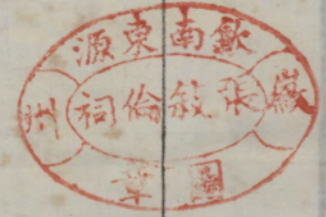 歙南東源
徽州
張敘倫祠
圖章